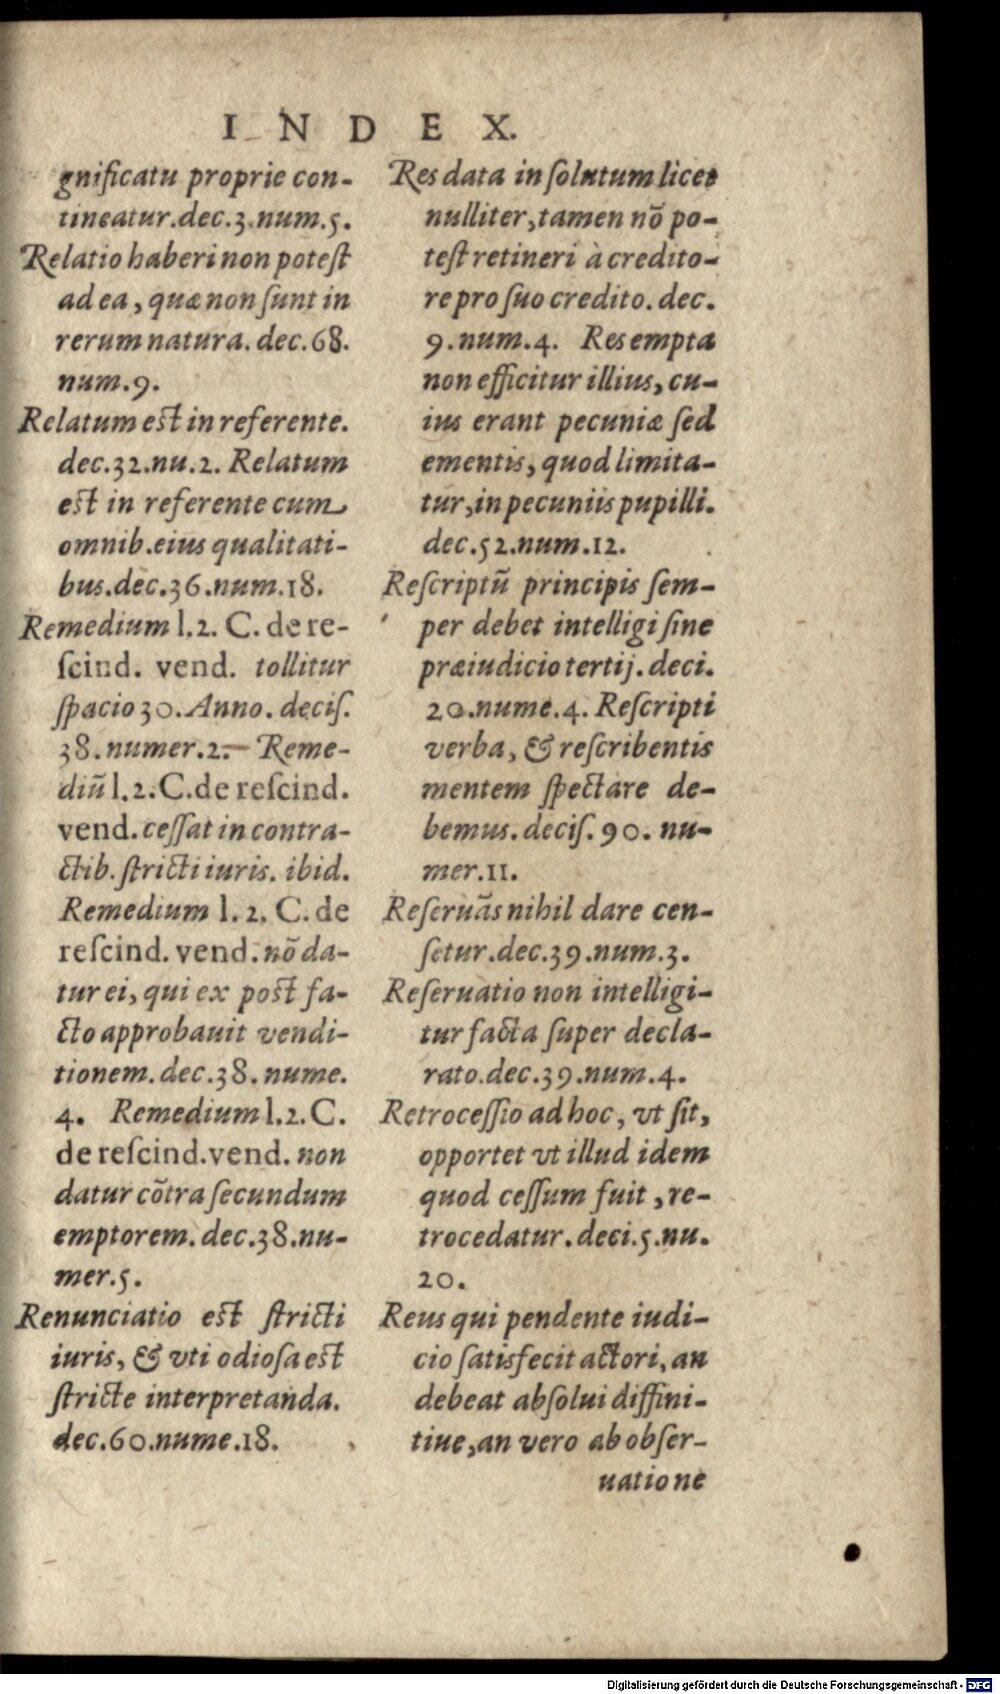 INDEX.
gnificatu proprie con-
tineatur.dec.3.num.5.
Relatio haberi non potest
ad ea, quæ non ſunt in
rerum natura. dec. 68.
num.9.
Relatum est in referente.
dec.32.nu.2. Relatum
est in referente cum
omnib.eius qualitati-
bus.dec.36.num.18.
Remedium l.2. C. de re-
ſcind. vend. tollitur
ſpacio 30. Anno. deciſ.
38.numer.2.- Reme-
diū l.2.C.de reſcind.
vend.ceſſat in contra-
ctib.ſtricti iuris. ibid.
Remedium l. 2. C. de
reſcind. vend. nō da-
tur ei, qui ex poſt fa-
cto approbauit vendi-
tionem. dec.38. nume.
4. Remedium l.2.C.
de reſcind.vend. non
datur cōtra ſecundum
emptorem. dec.38.nu-
mer.5.
Renunciatio est ſtricti
iuris, & vti odioſa est
ſtricte interpretanda.
dec.60.nume.18.
Res data in ſolutum licet
nulliter, tamen nō po-
teſt retineri à credito-
re pro ſuo credito. dec.
9.num.4. Res empta
non efficitur illius, cu-
ius erant pecuniæ ſed
ementis, quod limita-
tur, in pecuniis pupilli.
dec.52.num.12.
Reſcriptū principis ſem-
per debet intelligi ſine
præiudicio tertij. deci.
20.nume.4. Reſcripti
verba, & reſcribentis
mentem ſpectare de-
bemus. deciſ. 90. nu-
mer.11.
Reſeruās nihil dare cen-
ſetur.dec.39.num.3.
Reſeruatio non intelligi-
tur facta ſuper decla-
rato.dec.39.num.4.
Retroceſſio ad hoc, vt ſit,
opportet vt illud idem
quod ceſſum fuit, re-
trocedatur. deci.5.nu.
20.
Reus qui pendente iudi-
cio ſatisfecit actori, an
debeat abſolui diffini-
tiue, an vero ab obſer-
uatione
Digitalisierung gefördert durch die Deutsche Forschungsgemeinschaft - DFG